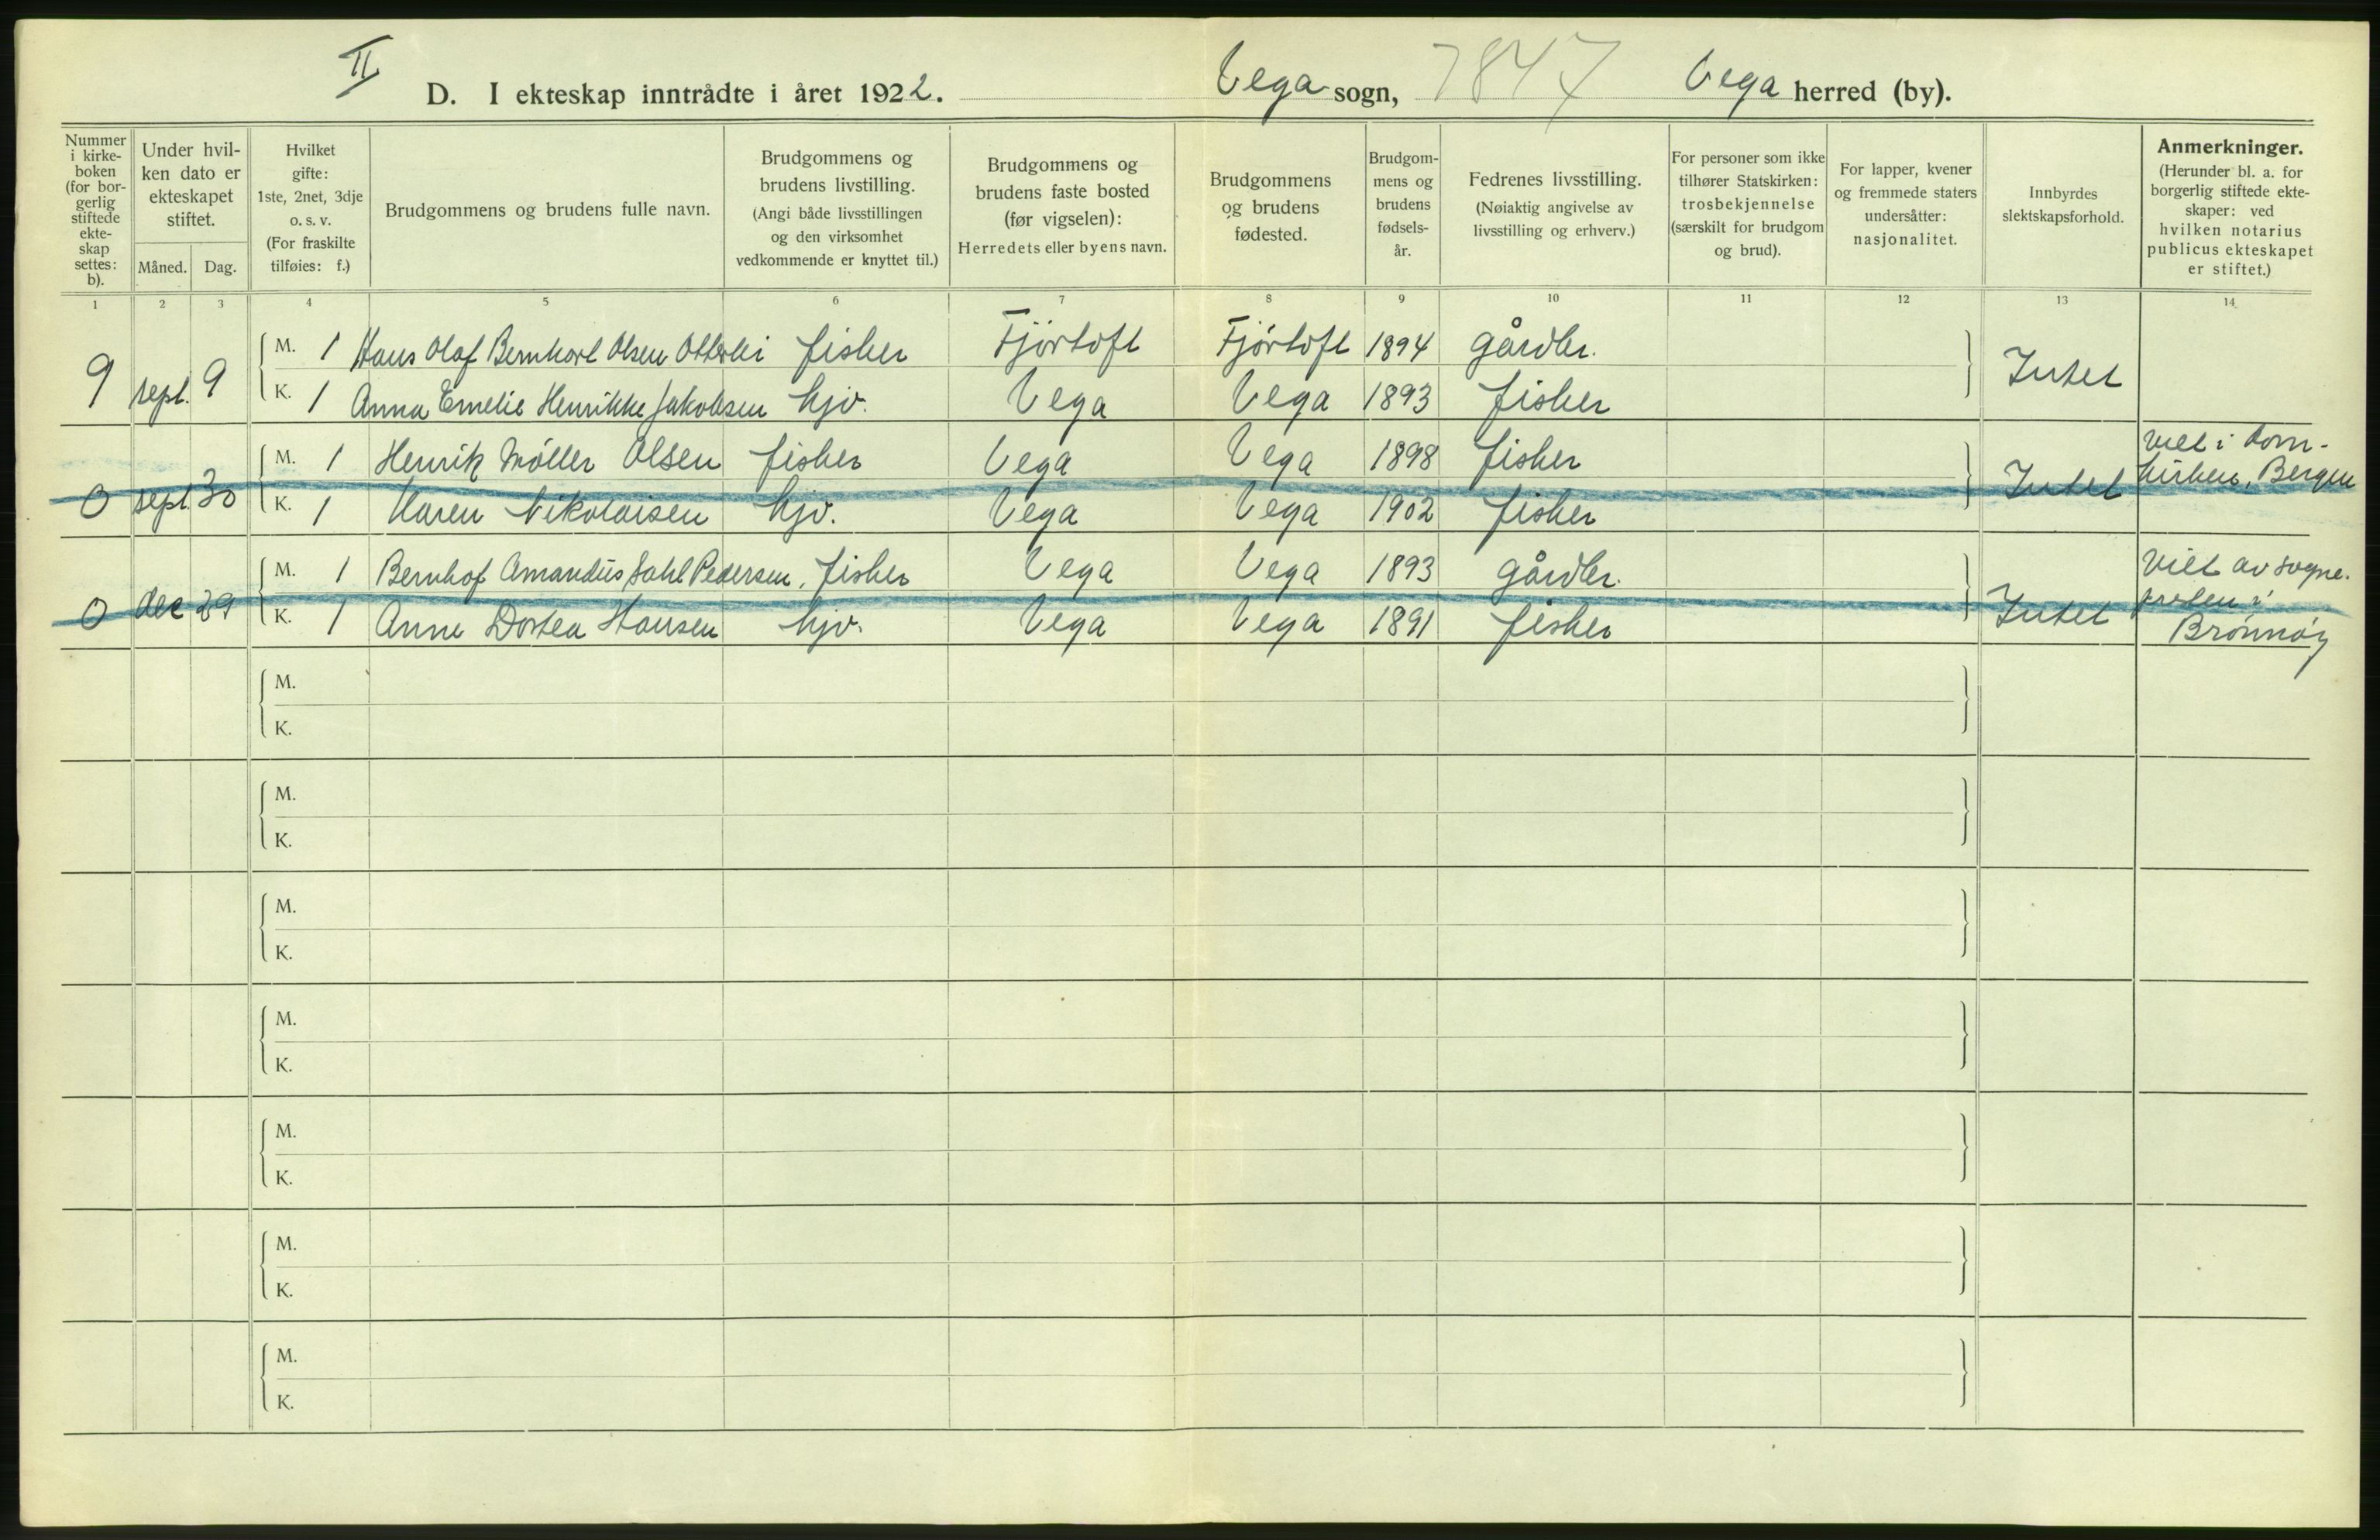 II
D. I ekteskap inntrådte i året 1922. Vega sogn, 7847 Vega herred (by).
Nummer i kirkeboken (for borgerlig stiftede ekteskap settes: b).
Under hvilken dato er ekteskapet stiftet.
Måned. Dag.
Hvilket gifte: 1ste, 2net, 3dje o. s. v. (For fraskilte tilføies: f.)
Brudgommens og brudens fulle navn.
Brudgommens og brudens livstilling. (Angi både livsstillingen og den virksomhet vedkommende er knyttet til.)
Brudgommens og brudens faste bosted (før vigselen): Herredets eller byens navn.
Brudgommens og brudens fødested.
Brudgommens og brudens fødselsår.
Fedrenes livsstilling. (Nøiaktig angivelse av livsstilling og erhverv.)
For personer som ikke tilhører Statskirken: trosbekjennelse (særskilt for brudgom og brud).
For lapper, kvener og fremmede staters undersåtter: nasjonalitet.
Innbyrdes slektskapsforhold.
Anmerkninger. (Herunder bl. a. for borgerlig stiftede ekteskaper: ved hvilken notarius publicus ekteskapet er stiftet.)
1 2 3 4 5 6 7 8 9 10 11 12 13 14
9 sept. 9 M. 1 Hans Olaf Bernhart Olsen Otterlei fisker Fjörtoft Fjörtoft 1894 gårdbr. Intet
K. 1 Anna Emelie Henrikke Jakobsen hjv. Vega Vega 1893 fisker
0 sept. 30 M. 1 Henrik Möller Olsen fisker Vega Vega 1898 fisker Intet viet i dom-
kirken, Bergen
K. 1 Karen Nikolaisen hjv. Vega Vega 1902 fisker
0 dec 29 M. 1 Bernhof Amandus Dahl Pedersen. fisker Vega Vega 1893 gårdbr. Intet Viet av sogne-
presten i
K. 1 Anne Dortea Hansen hjv. Vega Vega 1891 fisker Brönnöy
M.
K.
M.
K.
M.
K.
M.
K.
M.
K.
M.
K.
M.
K.